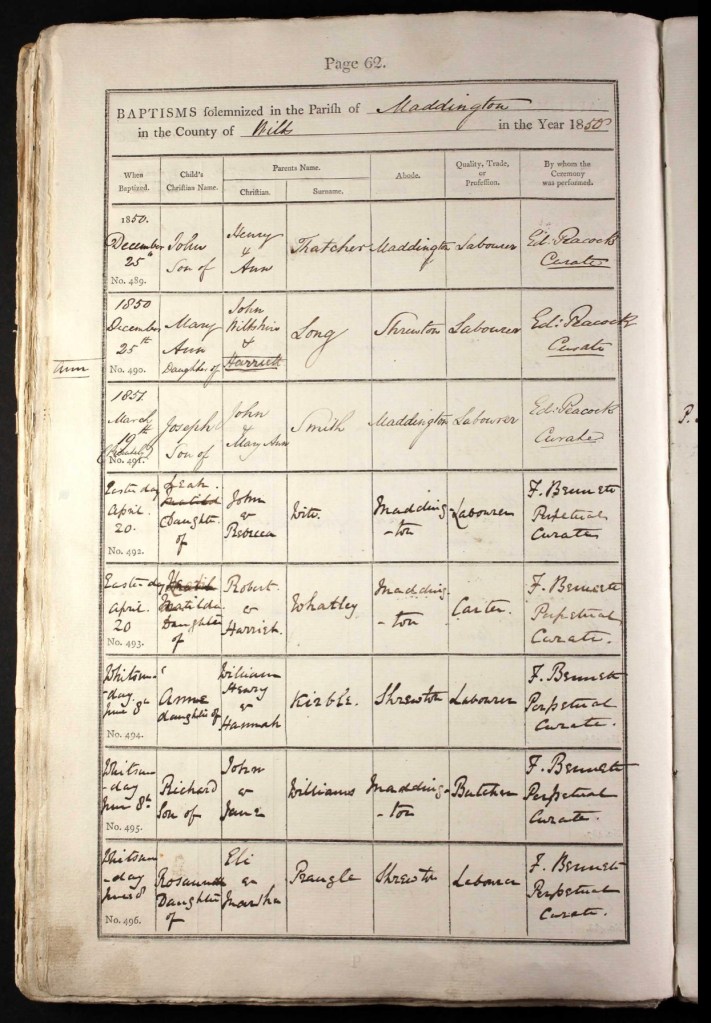 Page 62.
BAPTISMS solemnized in the Parish of Maddington
in the County of Wilts in the Year 1850
When Baptized. Child's Christian Name. Parents Name. Abode. Quality, Trade, or Profession. By whom the Ceremony was performed.
Christian. Surname.
1850.
December 25th John Son of Henry & Ann Thatcher Maddington Labourer Ed: Peacock Curate
No. 489.
1850
December 25th Mary Ann Daughter of John Wiltshire & Harriett Long Shrewton Labourer Ed: Peacock Curate
No. 490.
Ann
1851
March 19th Joseph Son of John & Mary Ann Smith Maddington Labourer Ed: Peacock Curate
No. 491.
Easter day April 20. Leah Matilda Daughter of John & Rebecca Witt Madding-ton Labourer F. Bennett Perpetual Curate
No. 492.
Easter day April 20 Matilda Daughter of Robert & Harriet Whatley Madding-ton Carter. F. Bennett Perpetual Curate.
No. 493.
Whitsun-day June 8th Anne daughter of William Henry & Hannah Kibble. Shrewton Labourer F. Bennett Perpetual Curate.
No. 494.
Whitsun-day June 8th Richard Son of John & Jane Williams Madding-ton Butcher F. Bennett Perpetual Curate.
No. 495.
Whitsun-day June 8 Rosannah Daughter of Eli & Martha Prangle Shrewton Labourer F. Bennett Perpetual Curate.
No. 496.
P.